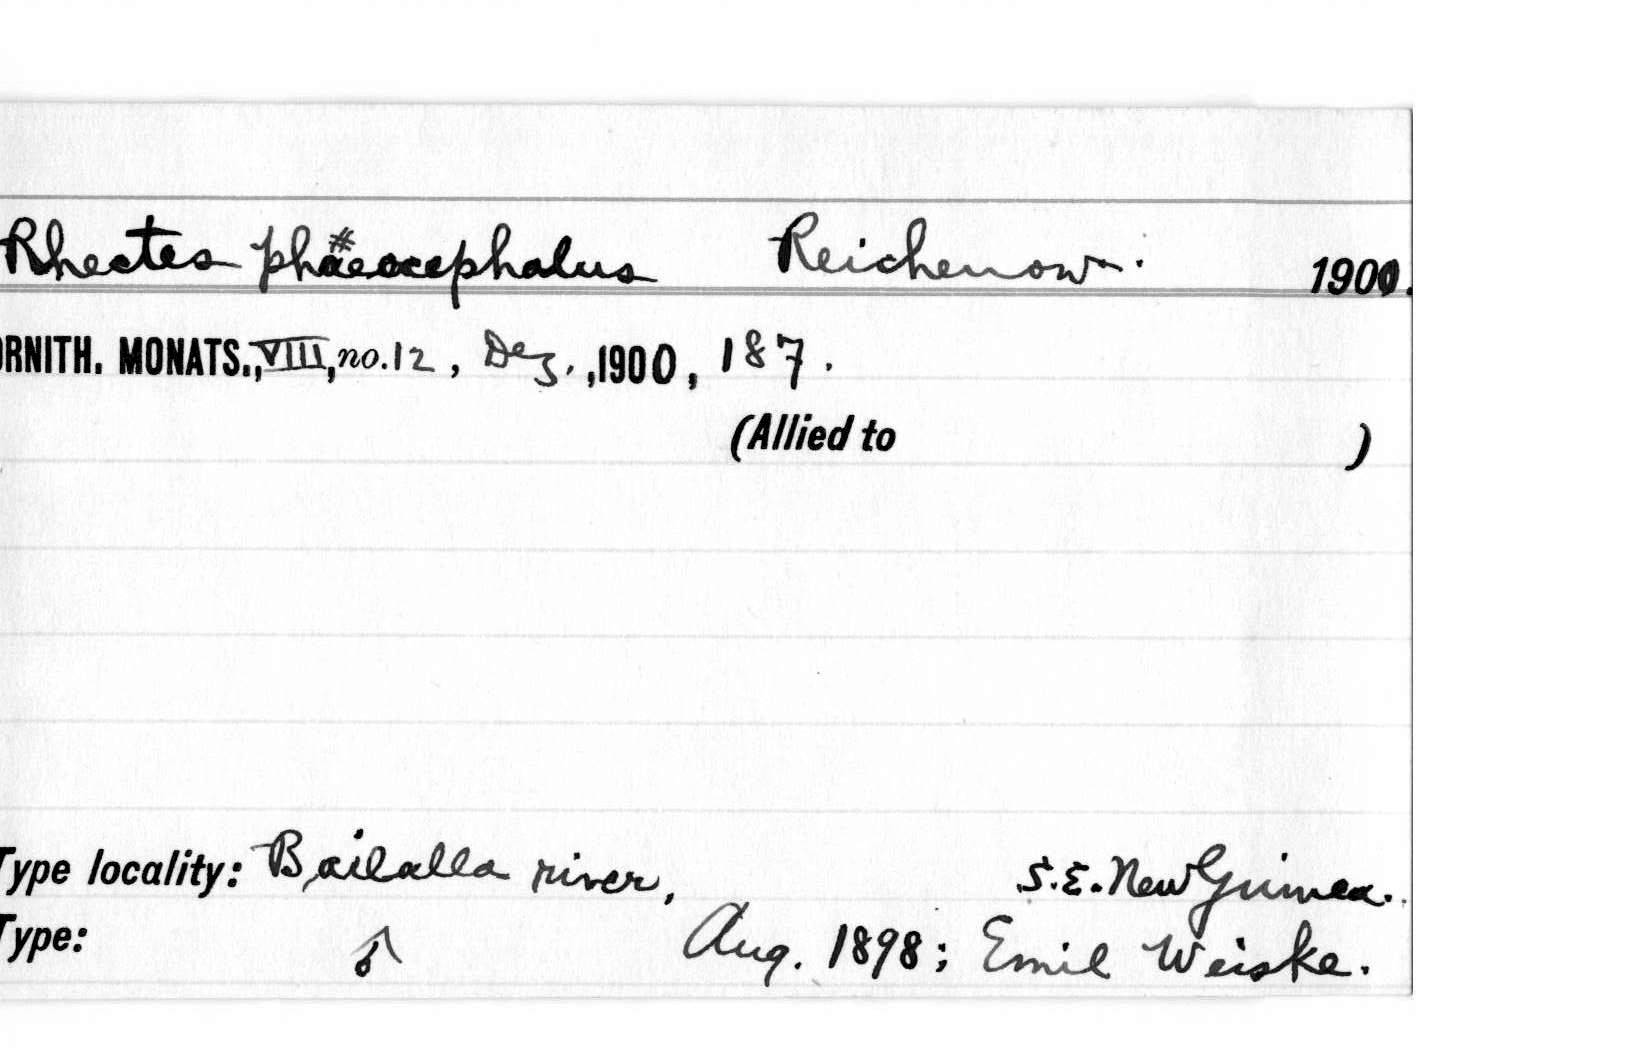 Rhectes phaeocephalus Reichenow. 1900.
#
ORNITH. MONATS., VIII, no. 12, Dez., ,1900, 187.
(Allied to )
Type locality: Bailalla river, S.E. New Guinea.
Type: ♂ Aug. 1898; Emil Weiske.